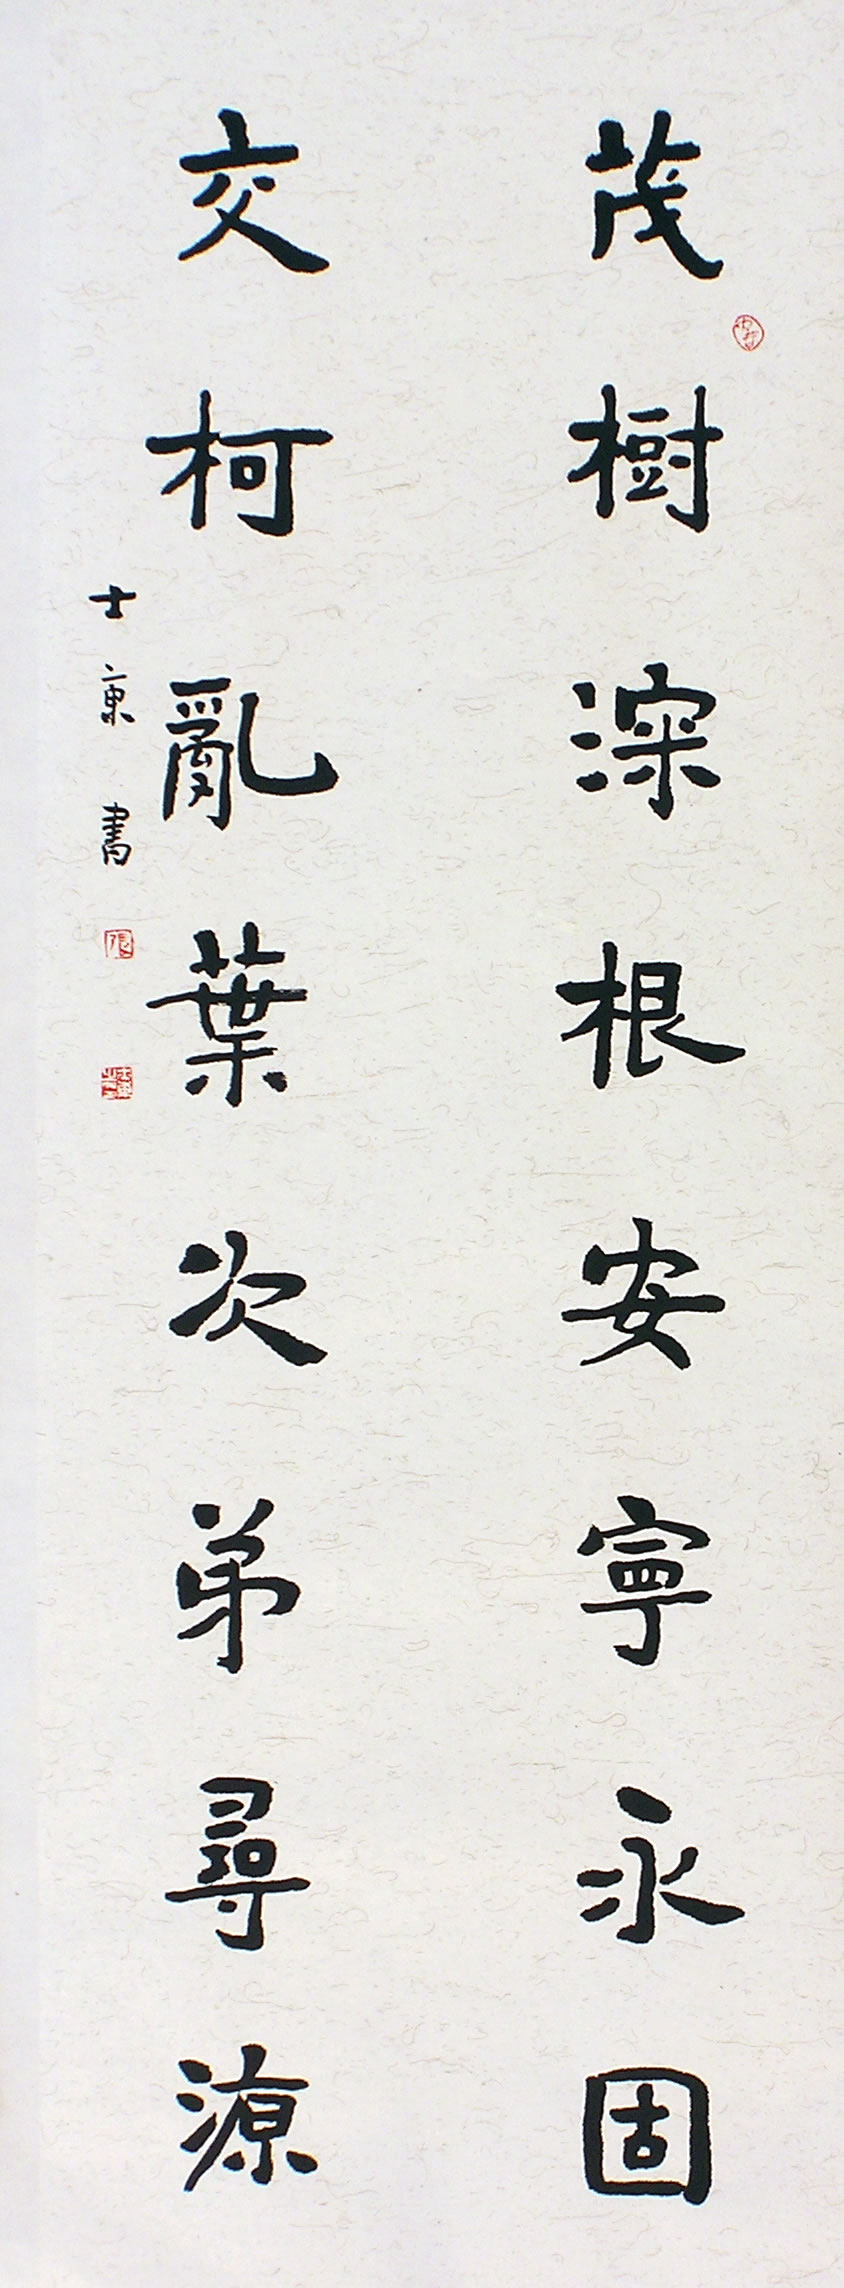 茂樹深根安寧永固
交柯亂葉次弟尋源
士康書